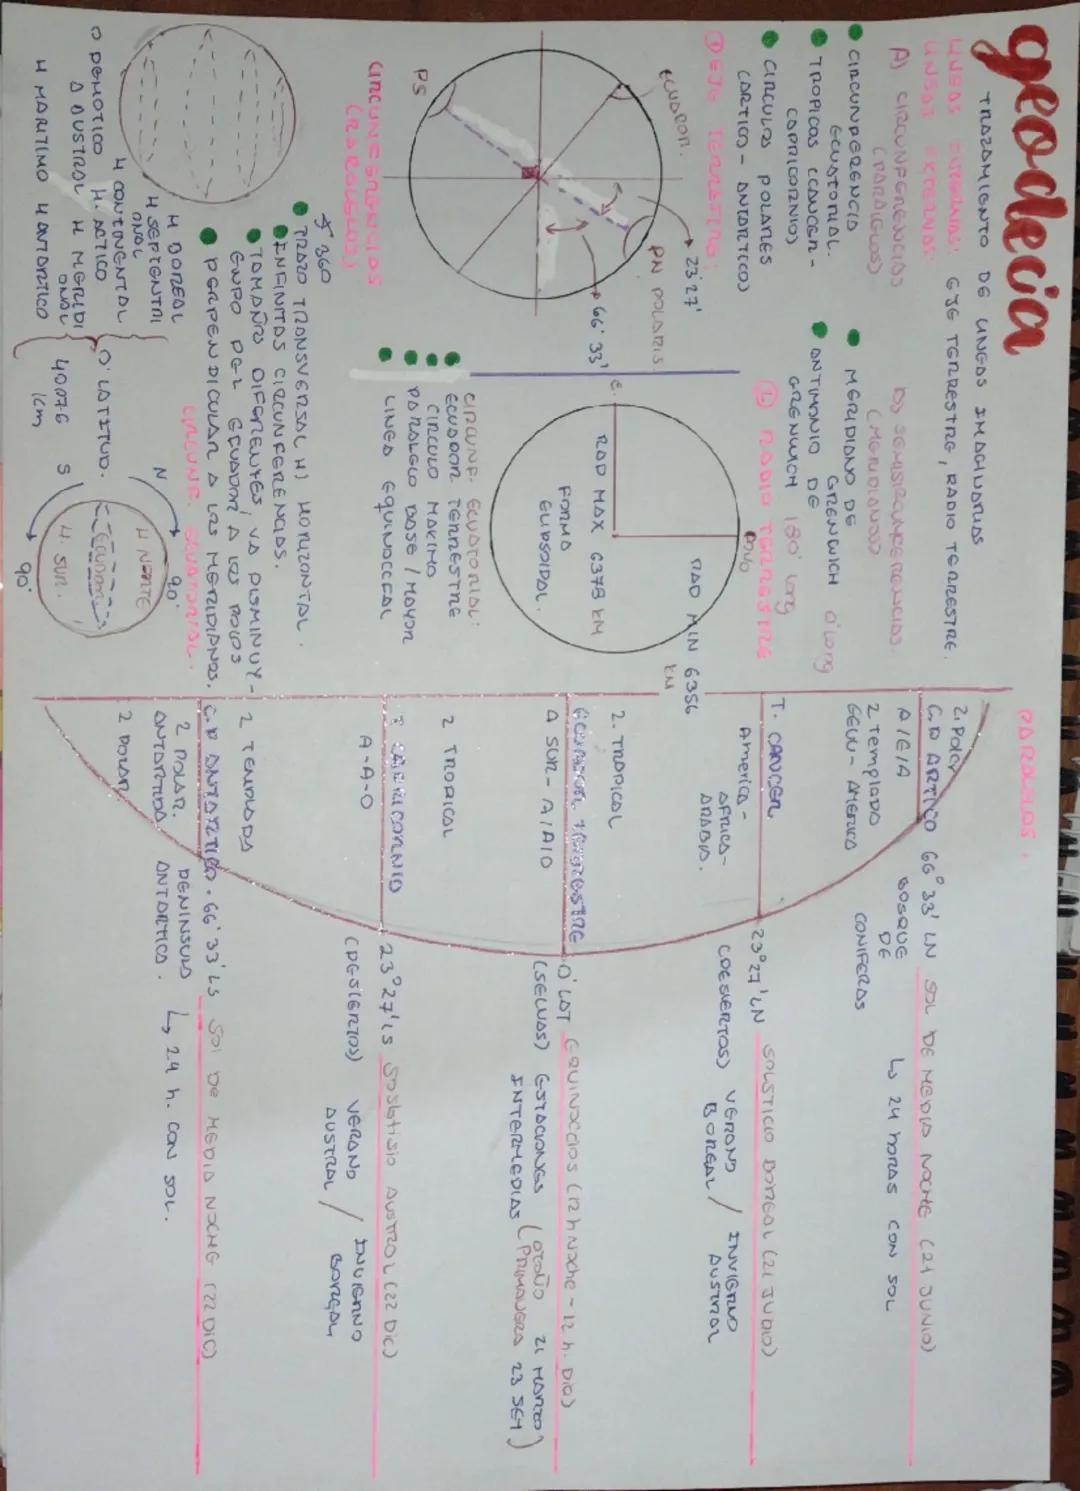 geodecia
TRAZAMIENTO DE LINEAS IMAGINARIAS
LINEAS INTERNAS: EJE TERRESTRE, RADIO TERRESTRE.
LINEAS EXTERNAS:
A) CIRCUNFERENCIAS
(PARALELOS)
CIRCUNFERENCIA
ECUATORIAL.
TROPICAS (CANCER-
CAPRICORNIO)
CIRCULOS POLARES
(ARTICO - ANTARTICO)
SEMISIRCUNFERENCIAS.
(MERIDIANOS)
MERIDIANO DE
GRENWICH 0° long
ANTIMONIO DE
GRENWICH 180° long
① EJE TERRESTRE:
ECUADOR.
23°27'
PN POLARIS.
66° 33'
PS
② RADIO TERRESTRE
RAD MIN 6356
KM
RAD MAX 6378 KM
FORMA
ELIPSOIDAL.
CIRCUNFERENCIAS
(PARALELOS)
360
TRAZO TRANSVERSAL H) HORIZONTAL.
INFINITAS CIRCUNFERENCIAS.
TAMAÑO DIFERENTES, VA DISMINUY-
ENDO DEL ECUADOR A LOS POLOS
PERPENDICULAR A LOS MERIDIANOS.
CIRCUNF. ECUATORIAL:
ECUADOR TERRESTRE
CIRCULO MAXIMO
PARALELO BASE / MAYOR
LINEA EQUINOCCIAL
CIRCUNF. ECUATORIAL.
H BOREAL
H SEPTENTRI
ONAL
H CONTINENTAL
H ARTICO
A AUSTRAL H MERIDI
ONAL
H MARITIMO H ANTARTICO
0° LATITUD.
40076
KM
N
90°
H NORTE
ECUADOR
H. SUR.
S
90°
PARALELOS.
2. Polar
C.P ARTICO 66° 33' LN SOL DE MEDIA NOCHE (21 JUNIO)
A/E/A
BOSQUE
DE
CONIFERAS
↳ 24 horas CON SOL
2 Templado
EEUU - AMERICA
T. CANCER 23°27' LN SOLSTICIO BOREAL (21 JUNIO)
America -
AFRICA -
ARABIA.
(DESIERTOS) VERANO
BOREAL / INVIERNO
AUSTRAL
2. TRAPICAL
ECUADOR TERRESTRE 0° LAT EQUINOCCIOS (12 h Noche - 12 h. Dia)
A SUR - A/A/O
(SELVAS) ESTACIONES
INTERMEDIAS
(OTOÑO 21 MARZO
PRIMAVERA 23 SET)
2 TROPICAL
T CAPRICORNIO 23°27' LS Solstisio AUSTRAL (22 Dic)
A-A-O
(DESIERTOS) VERANO
AUSTRAL / INVIERNO
BOREAL
2 TEMPLADA
C.P ANTARTICO. 66° 33' LS Sol De MEDIA NOCHE (22 DIC)
2 POLAR.
ANTARTIDA
PENINSULA
ANTARTICA.
↳ 24 h. CON SOL.
2 POLAR